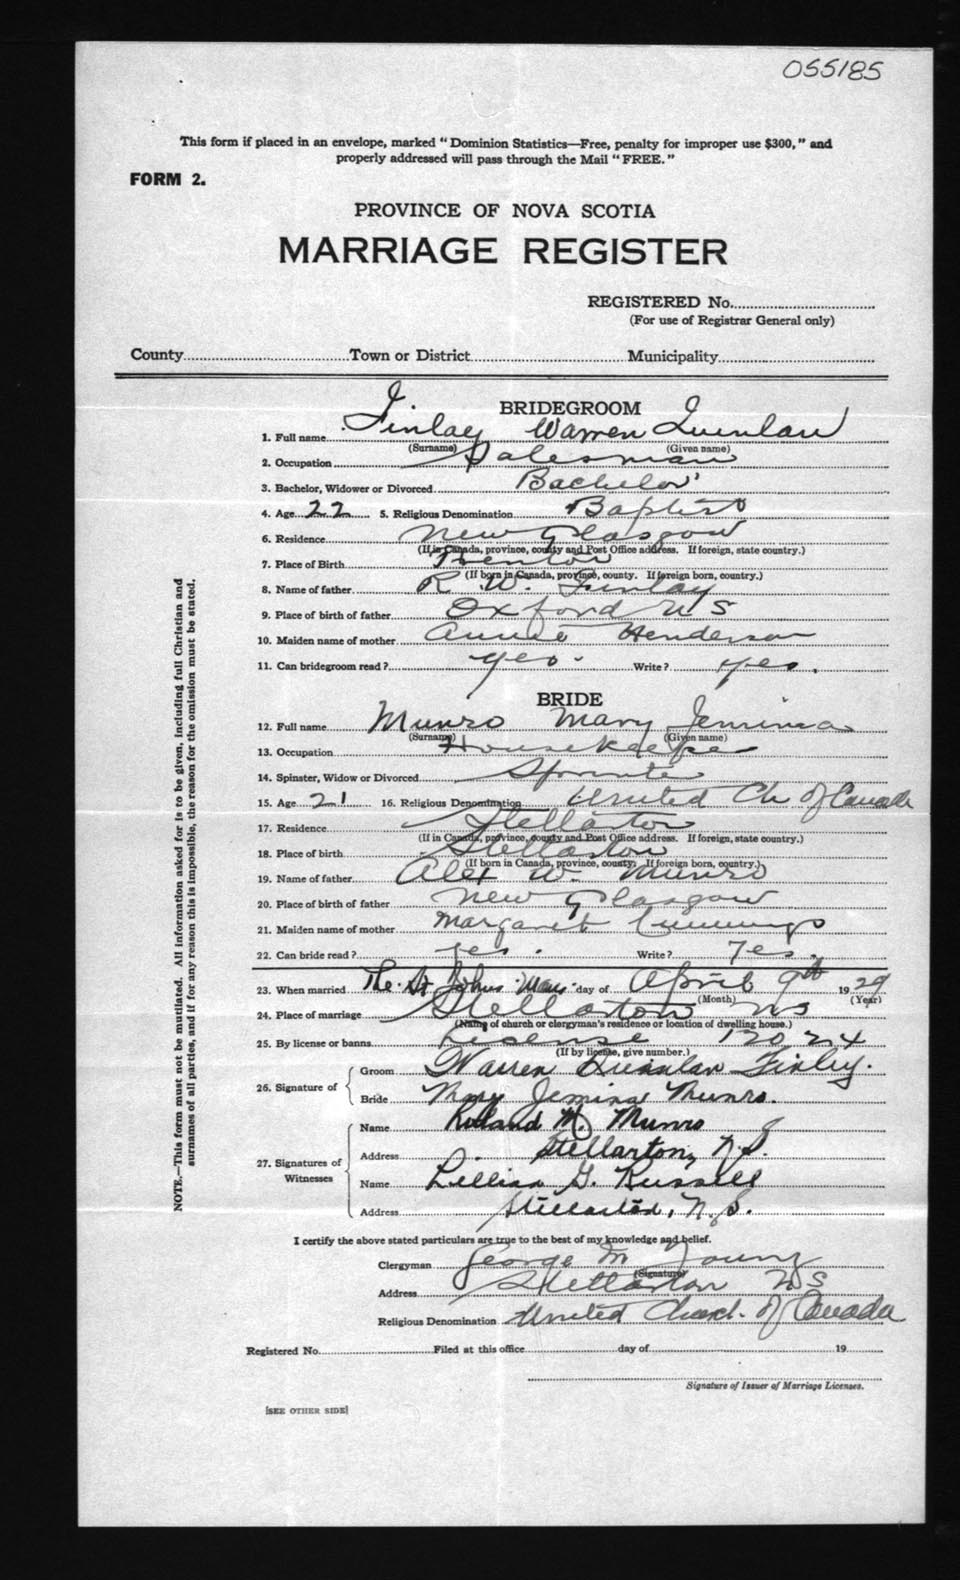 055185
This form if placed in an envelope, marked "Dominion Statistics—Free, penalty for improper use $300," and
properly addressed will pass through the Mail "FREE."
FORM 2.
PROVINCE OF NOVA SCOTIA
MARRIAGE REGISTER
REGISTERED No.
(For use of Registrar General only)
County Town or District Municipality
BRIDEGROOM
1. Full name Finlay Warren Quinlan
(Surname) (Given name)
2. Occupation Salesman
3. Bachelor, Widower or Divorced Bachelor
4. Age 22 5. Religious Denomination Baptist
6. Residence New Glasgow
(If in Canada, province, county and Post Office address. If foreign, state country.)
7. Place of Birth Trenton
(If born in Canada, province, county. If foreign born, country.)
8. Name of father R. W. Finlay
9. Place of birth of father Oxford NS
10. Maiden name of mother Annie Henderson
11. Can bridegroom read? yes. Write? yes.
BRIDE
12. Full name Munro Mary Jemima
(Surname) (Given name)
13. Occupation Housekeeper
14. Spinster, Widow or Divorced
15. Age 21 16. Religious Denomination United Ch of Canada
17. Residence Stellarton
(If in Canada, province, county and Post Office address. If foreign, state country.)
18. Place of birth Stellarton
(If born in Canada, province, county. If foreign born, country.)
19. Name of father Alex W. Munro
20. Place of birth of father New Glasgow
21. Maiden name of mother Margaret Cummings
22. Can bride read? yes. Write? Yes.
23. When married The St Johns Mans day of April 9th 1929
(Month) (Year)
24. Place of marriage Stellarton NS
(Name of church or clergyman's residence or location of dwelling house.)
25. By license or banns License 12024
(If by license, give number.)
26. Signature of Groom Warren Quinlan Finley.
Bride Mary Jemima Munro.
27. Signatures of Witnesses Name Rolland M. Munro
Address Stellarton, N.S.
Name Lillian G. Russell
Address Stellarton, N.S.
I certify the above stated particulars are true to the best of my knowledge and belief.
Clergyman George M Young
(Signature)
Address Stellarton NS
Religious Denomination United Church of Canada
Registered No. Filed at this office day of 19
Signature of Issuer of Marriage Licenses.
[SEE OTHER SIDE]
NOTE.—This form must not be mutilated. All information asked for is to be given, including full Christian and
surnames of all parties, and if for any reason this is impossible, the reason for the omission must be stated.